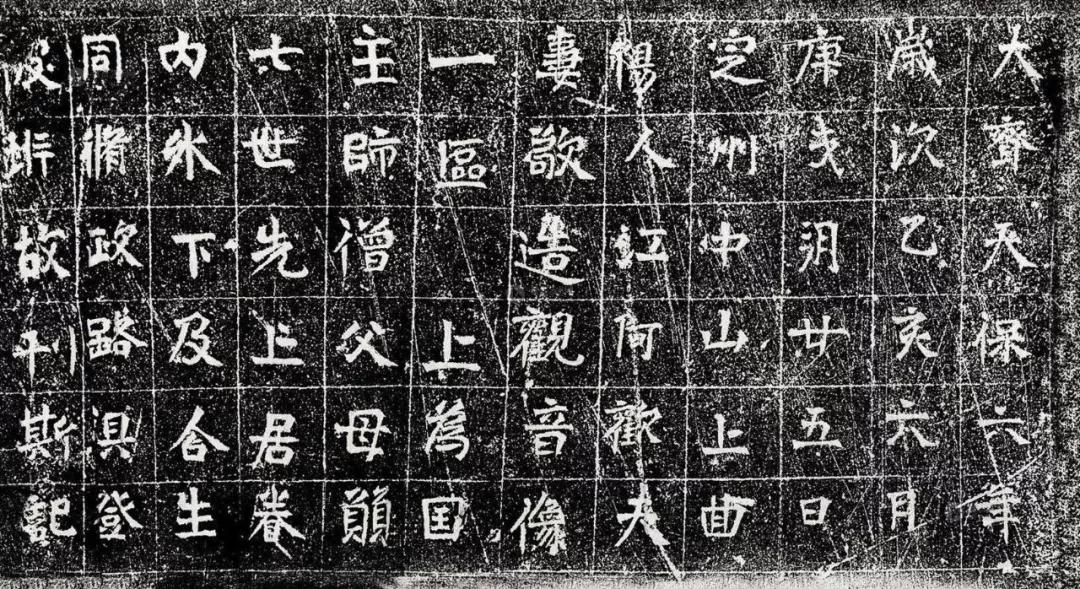 大齊天保六年
歲次乙亥六月
庚戌朔廿五日
定州中山上曲
楊人江阿歡夫
妻敬造觀音像
一區 上為国
主師僧父母願
七世先上居眷
內外下及含生
同脩政路俱登
彼岸故刊斯記